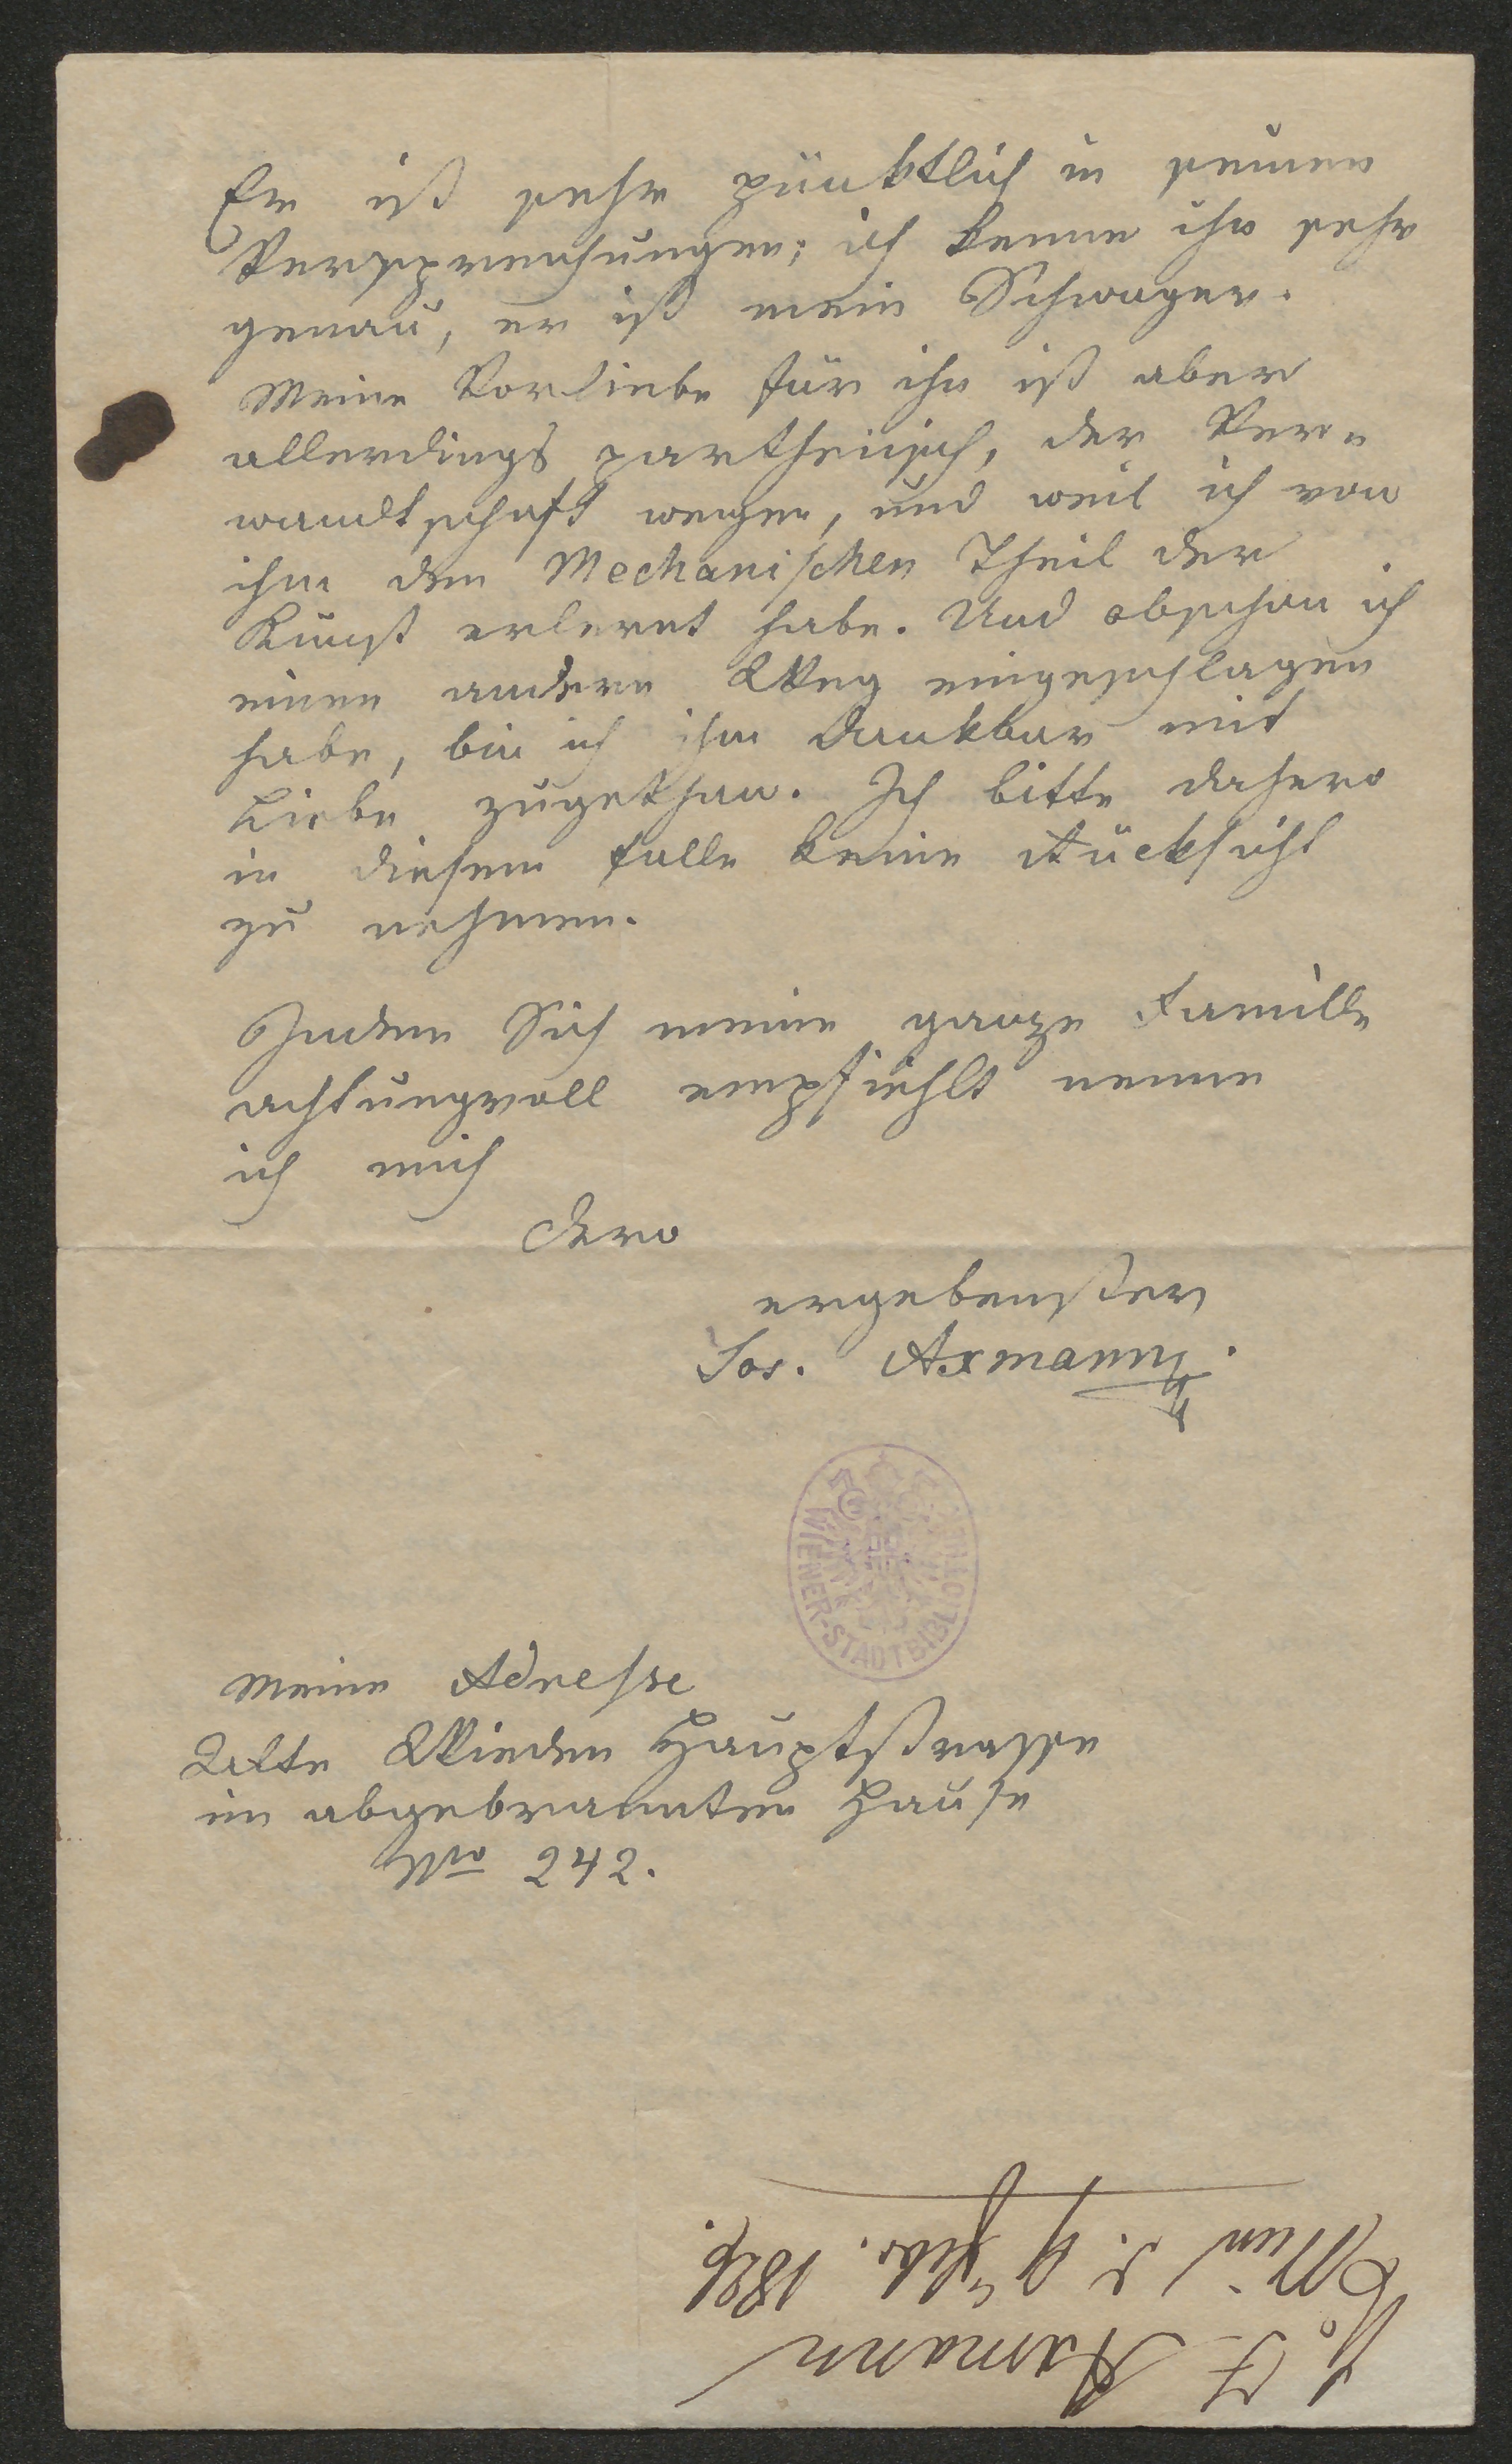 Er ist sehr pünktlich in seinen
Versprechungen; ich kenne ihn sehr
genau, er ist mein Schwager.
Meine Vorliebe für ihn ist aber
allerdings partheiisch, der Ver=
wandtschaft wegen, und weil ich von
ihm den Mechanischen Theil der
Kunst erlernt habe. Und obschon ich
einen andern Weg eingeschlagen
habe, bin ich ihm dankbar mit
Liebe zugethan. Ich bitte dahero
in diesem Falle keine Rücksicht
zu nehmen.
Indem Sich meine ganze Familie
achtungvoll empfiehlt nenne
ich mich
Dero
ergebenster
Jos. Axmann.
WIENER-STADTBIBLIOTHEK
Meine Adresse
Alte Wieden Hauptstrasse
im abgebrannten Hause
Nro 242.
J. Axmann
Wien d. 9 Febr. 1826.